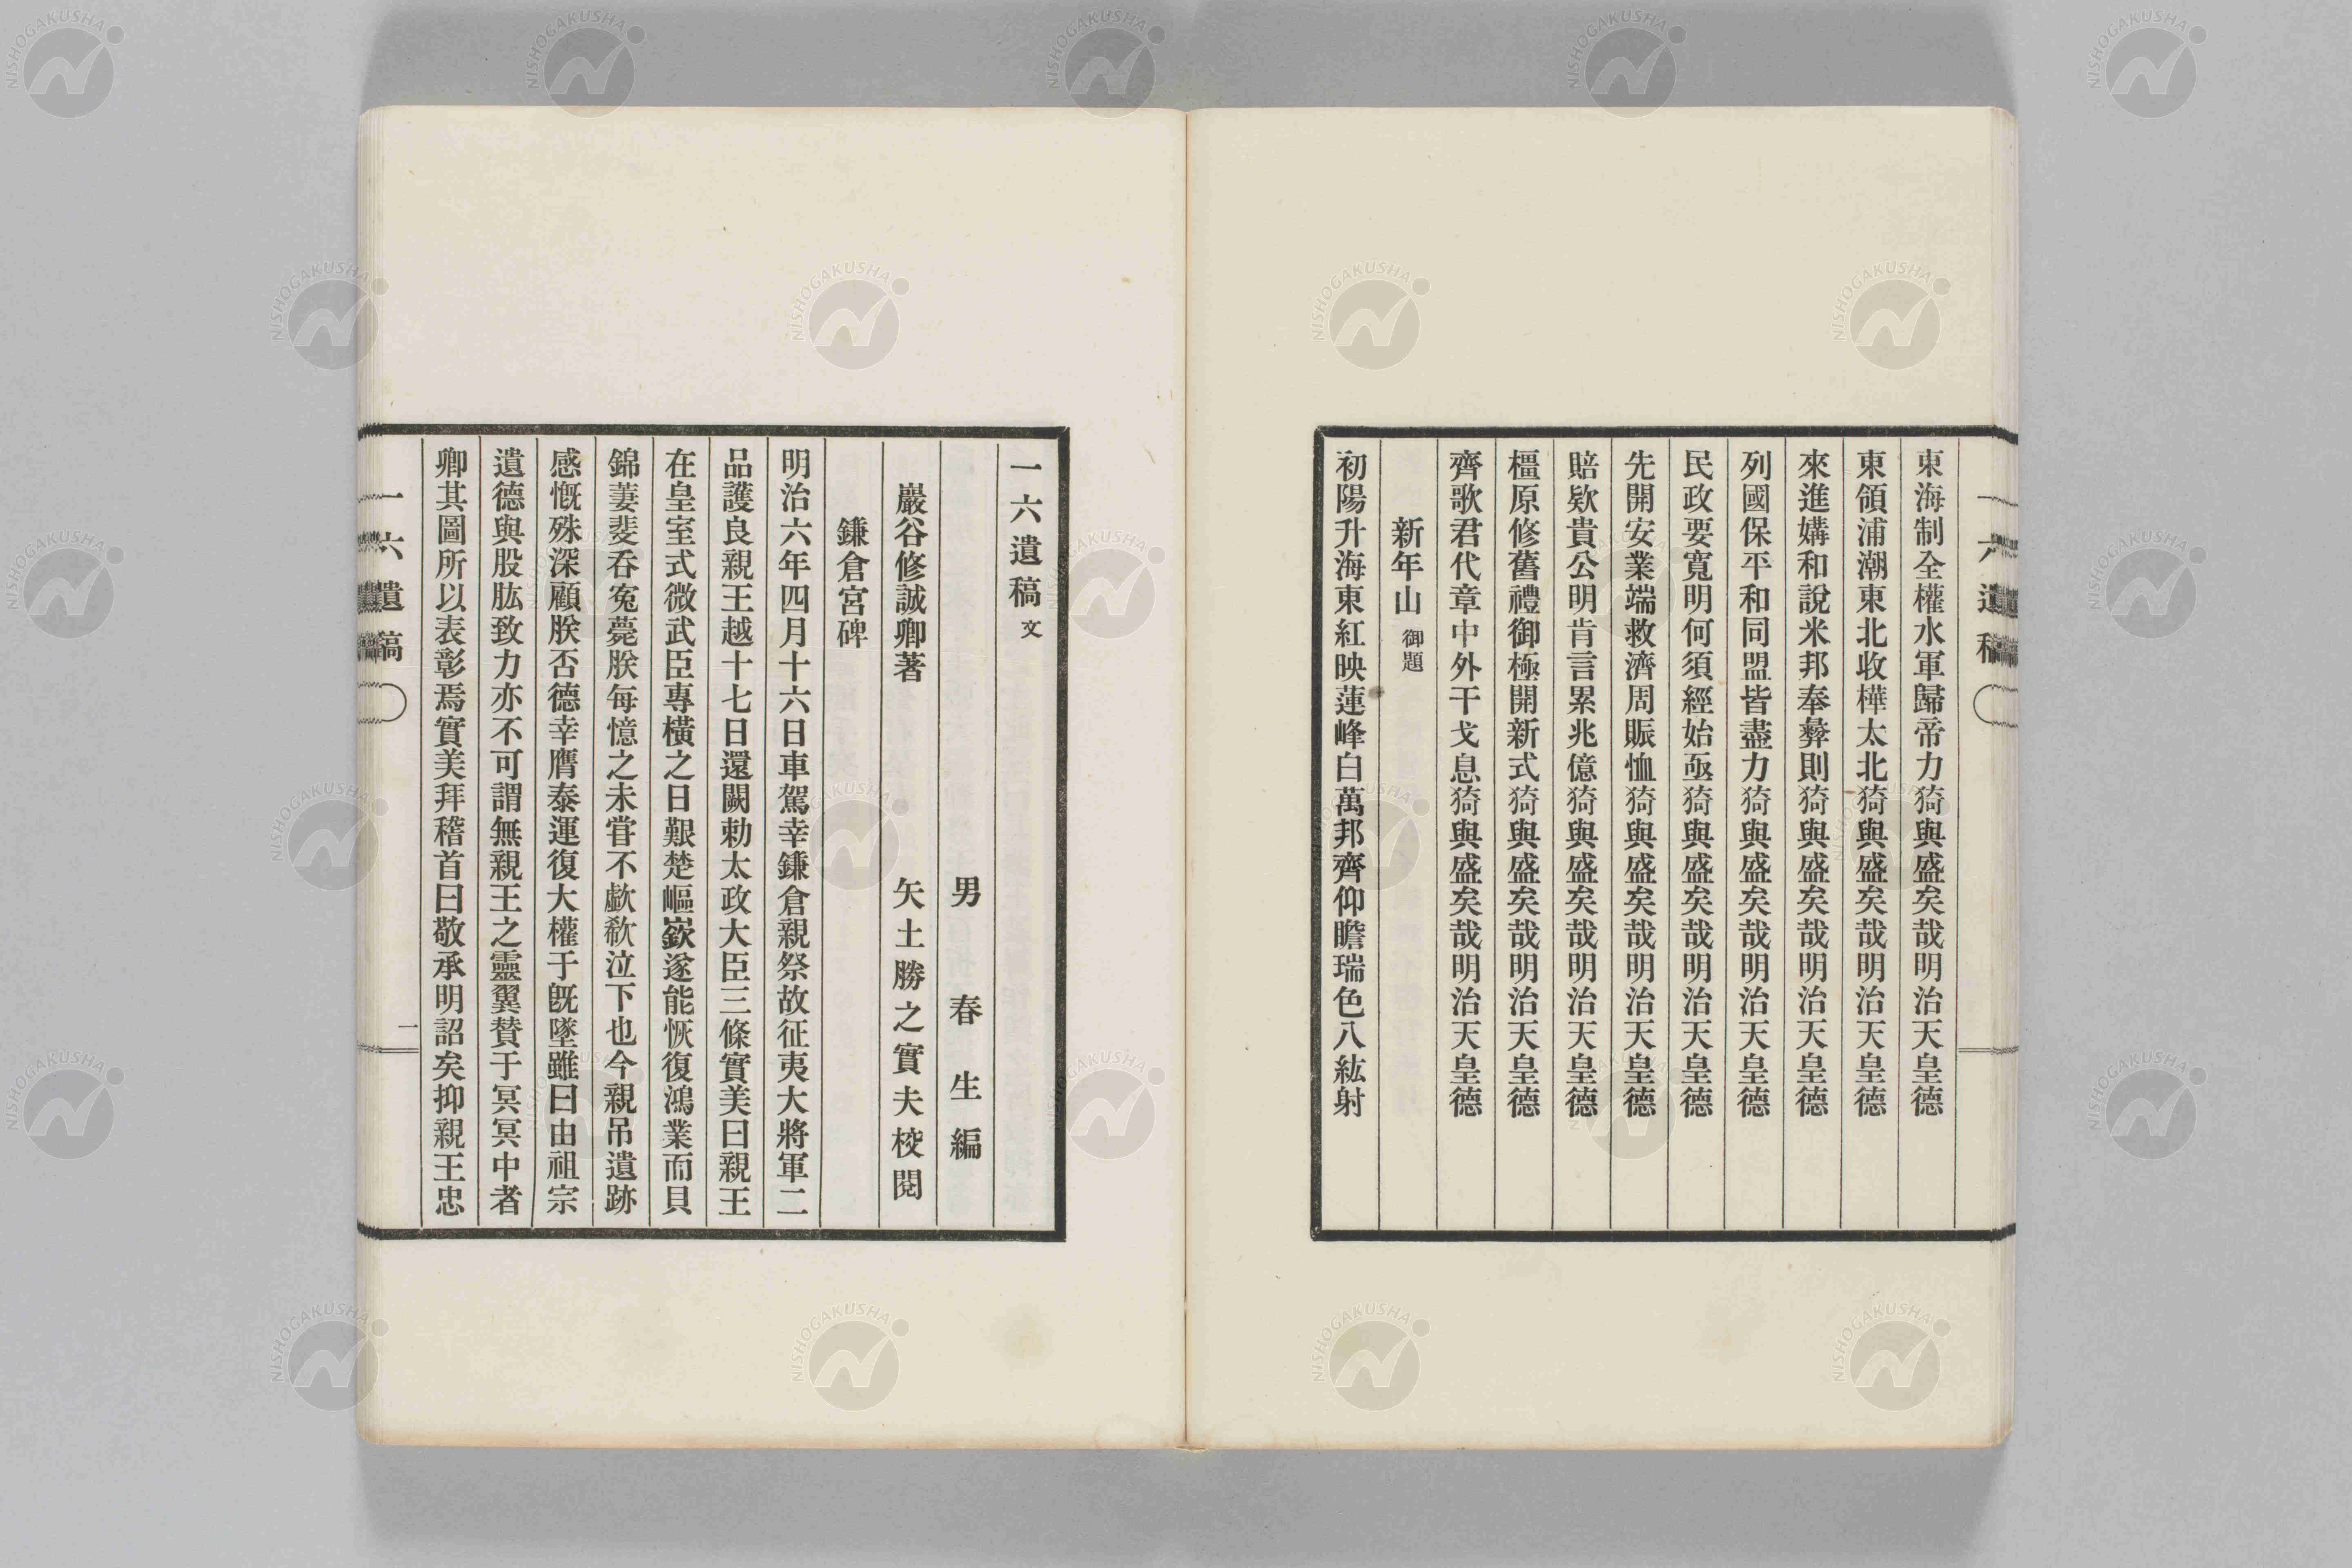 東海制全權水軍歸帝力猗與盛矣哉明治天皇德
東領浦潮東北收樺太北猗與盛矣哉明治天皇德
來進媾和說米邦奉彝則猗與盛矣哉明治天皇德
列國保平和同盟皆盡力猗與盛矣哉明治天皇德
民政要寬明何須經始亟猗與盛矣哉明治天皇德
先開安業端救濟周賑恤猗與盛矣哉明治天皇德
賠欵貴公明肯言累兆億猗與盛矣哉明治天皇德
橿原修舊禮御極開新式猗與盛矣哉明治天皇德
齊歌君代章中外干戈息猗與盛矣哉明治天皇德
新年山 御題
初陽升海東紅映蓮峰白萬邦齊仰瞻瑞色八紘射
一六遺稿 文
男 春生編
巖谷修誠卿著 矢土勝之實夫校閱
鎌倉宮碑
明治六年四月十六日車駕幸鎌倉親祭故征夷大將軍二
品護良親王越十七日還闕勅太政大臣三條實美曰親王
在皇室式微武臣專橫之日艱楚嶇嶔遂能恢復鴻業而貝
錦萋斐呑冤薨朕每憶之未甞不歔欷泣下也今親吊遺跡
感慨殊深顧朕否德幸膺泰運復大權于旣墜雖曰由祖宗
遺德與股肱致力亦不可謂無親王之靈翼賛于冥冥中者
卿其圖所以表彰焉實美拜稽首曰敬承明詔矣抑親王忠
一六遺稿
一